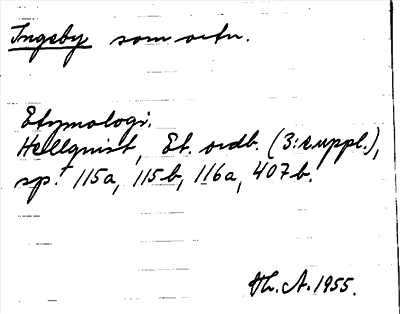 Ingeby som ortn.
Etymologi.
Hellquist, Et. ordb. (3:e uppl.),
sp. 115a, 115b, 116a, 407b.
Th. A. 1955.